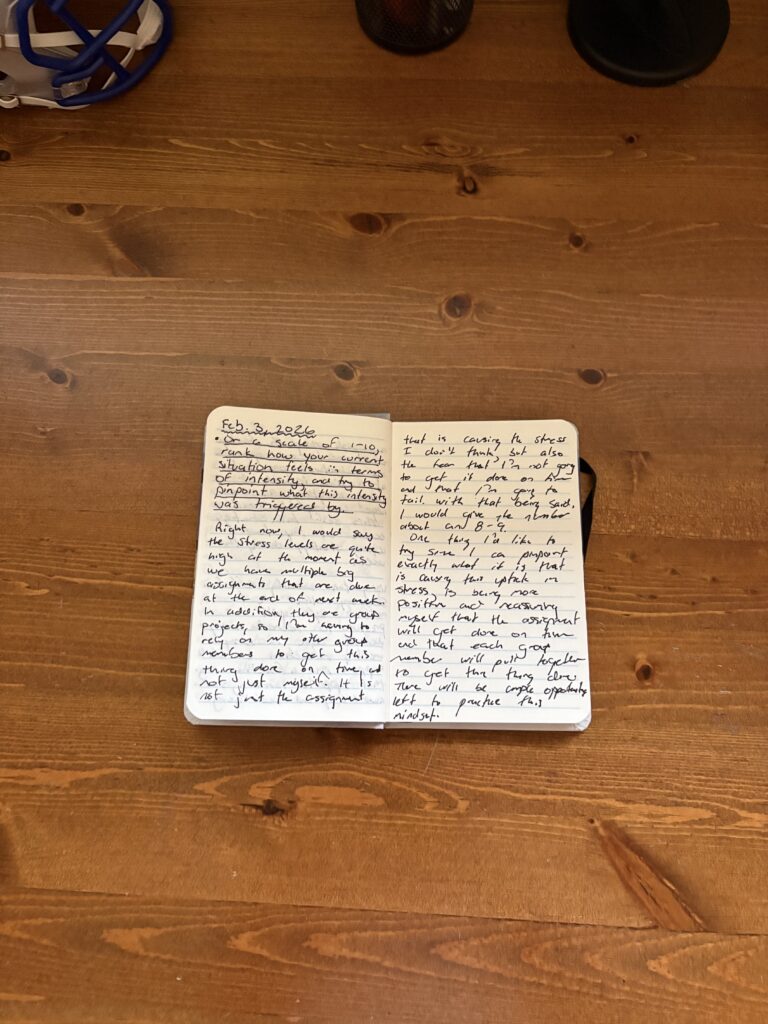 Feb. 3, 2026
• On a scale of 1-10,
rank how your current
situation feels in terms
of intensity, and try to
pinpoint what this intensity
was triggered by.
Right now, I would say
the stress levels are quite
high at the moment as
we have multiple big
assignments that are due
at the end of next week.
In addition, they are group
projects, so I'm having to
rely on my other group
members to get this
thing done on time, and
not just myself. It is
not just the assignment
that is causing the stress
I don't think, but also
the fear that I'm not going
to get it done on time
and that I'm going to
fail. With that being said,
I would give the number
about an 8-9.
One thing I'd like to
try since I can pinpoint
exactly what it is that
is causing this uptick in
stress, is being more
positive and reassuring
myself that the assignment
will get done on time
and that each group
member will pull together
to get this thing done.
There will be ample opportunity
left to practice this
mindset.